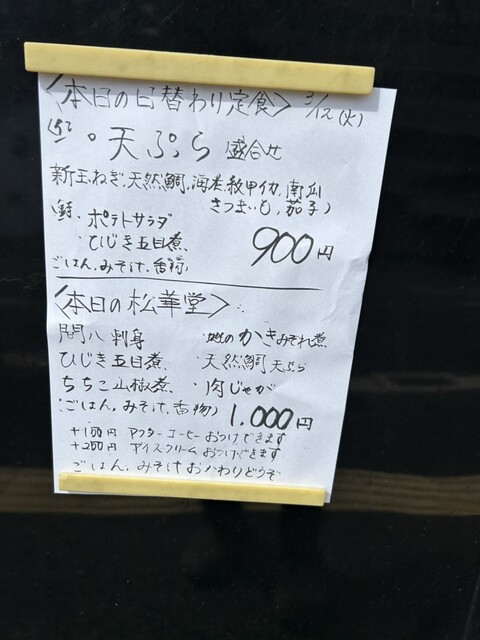 〈本日の日替わり定食〉 3/12(火)
・天ぷら 盛合せ
新玉ねぎ、天然鯛、海老、紋甲イカ、南瓜
さつまいも、茄子)
ポテトサラダ
ひじき五目煮、 900円
ごはん、みそ汁、香物)
〈本日の松華堂〉
間八刺身 ・地のかきみぞれ煮
ひじき五目煮、 天然鯛天ぷら
ちちこ山椒煮 ・肉じゃが
(ごはん、みそ汁、香物) 1,000円
+100円 アフターコーヒーおつけできます
+200円 アイスクリームおつけできます
ごはん、みそ汁おかわりどうぞ